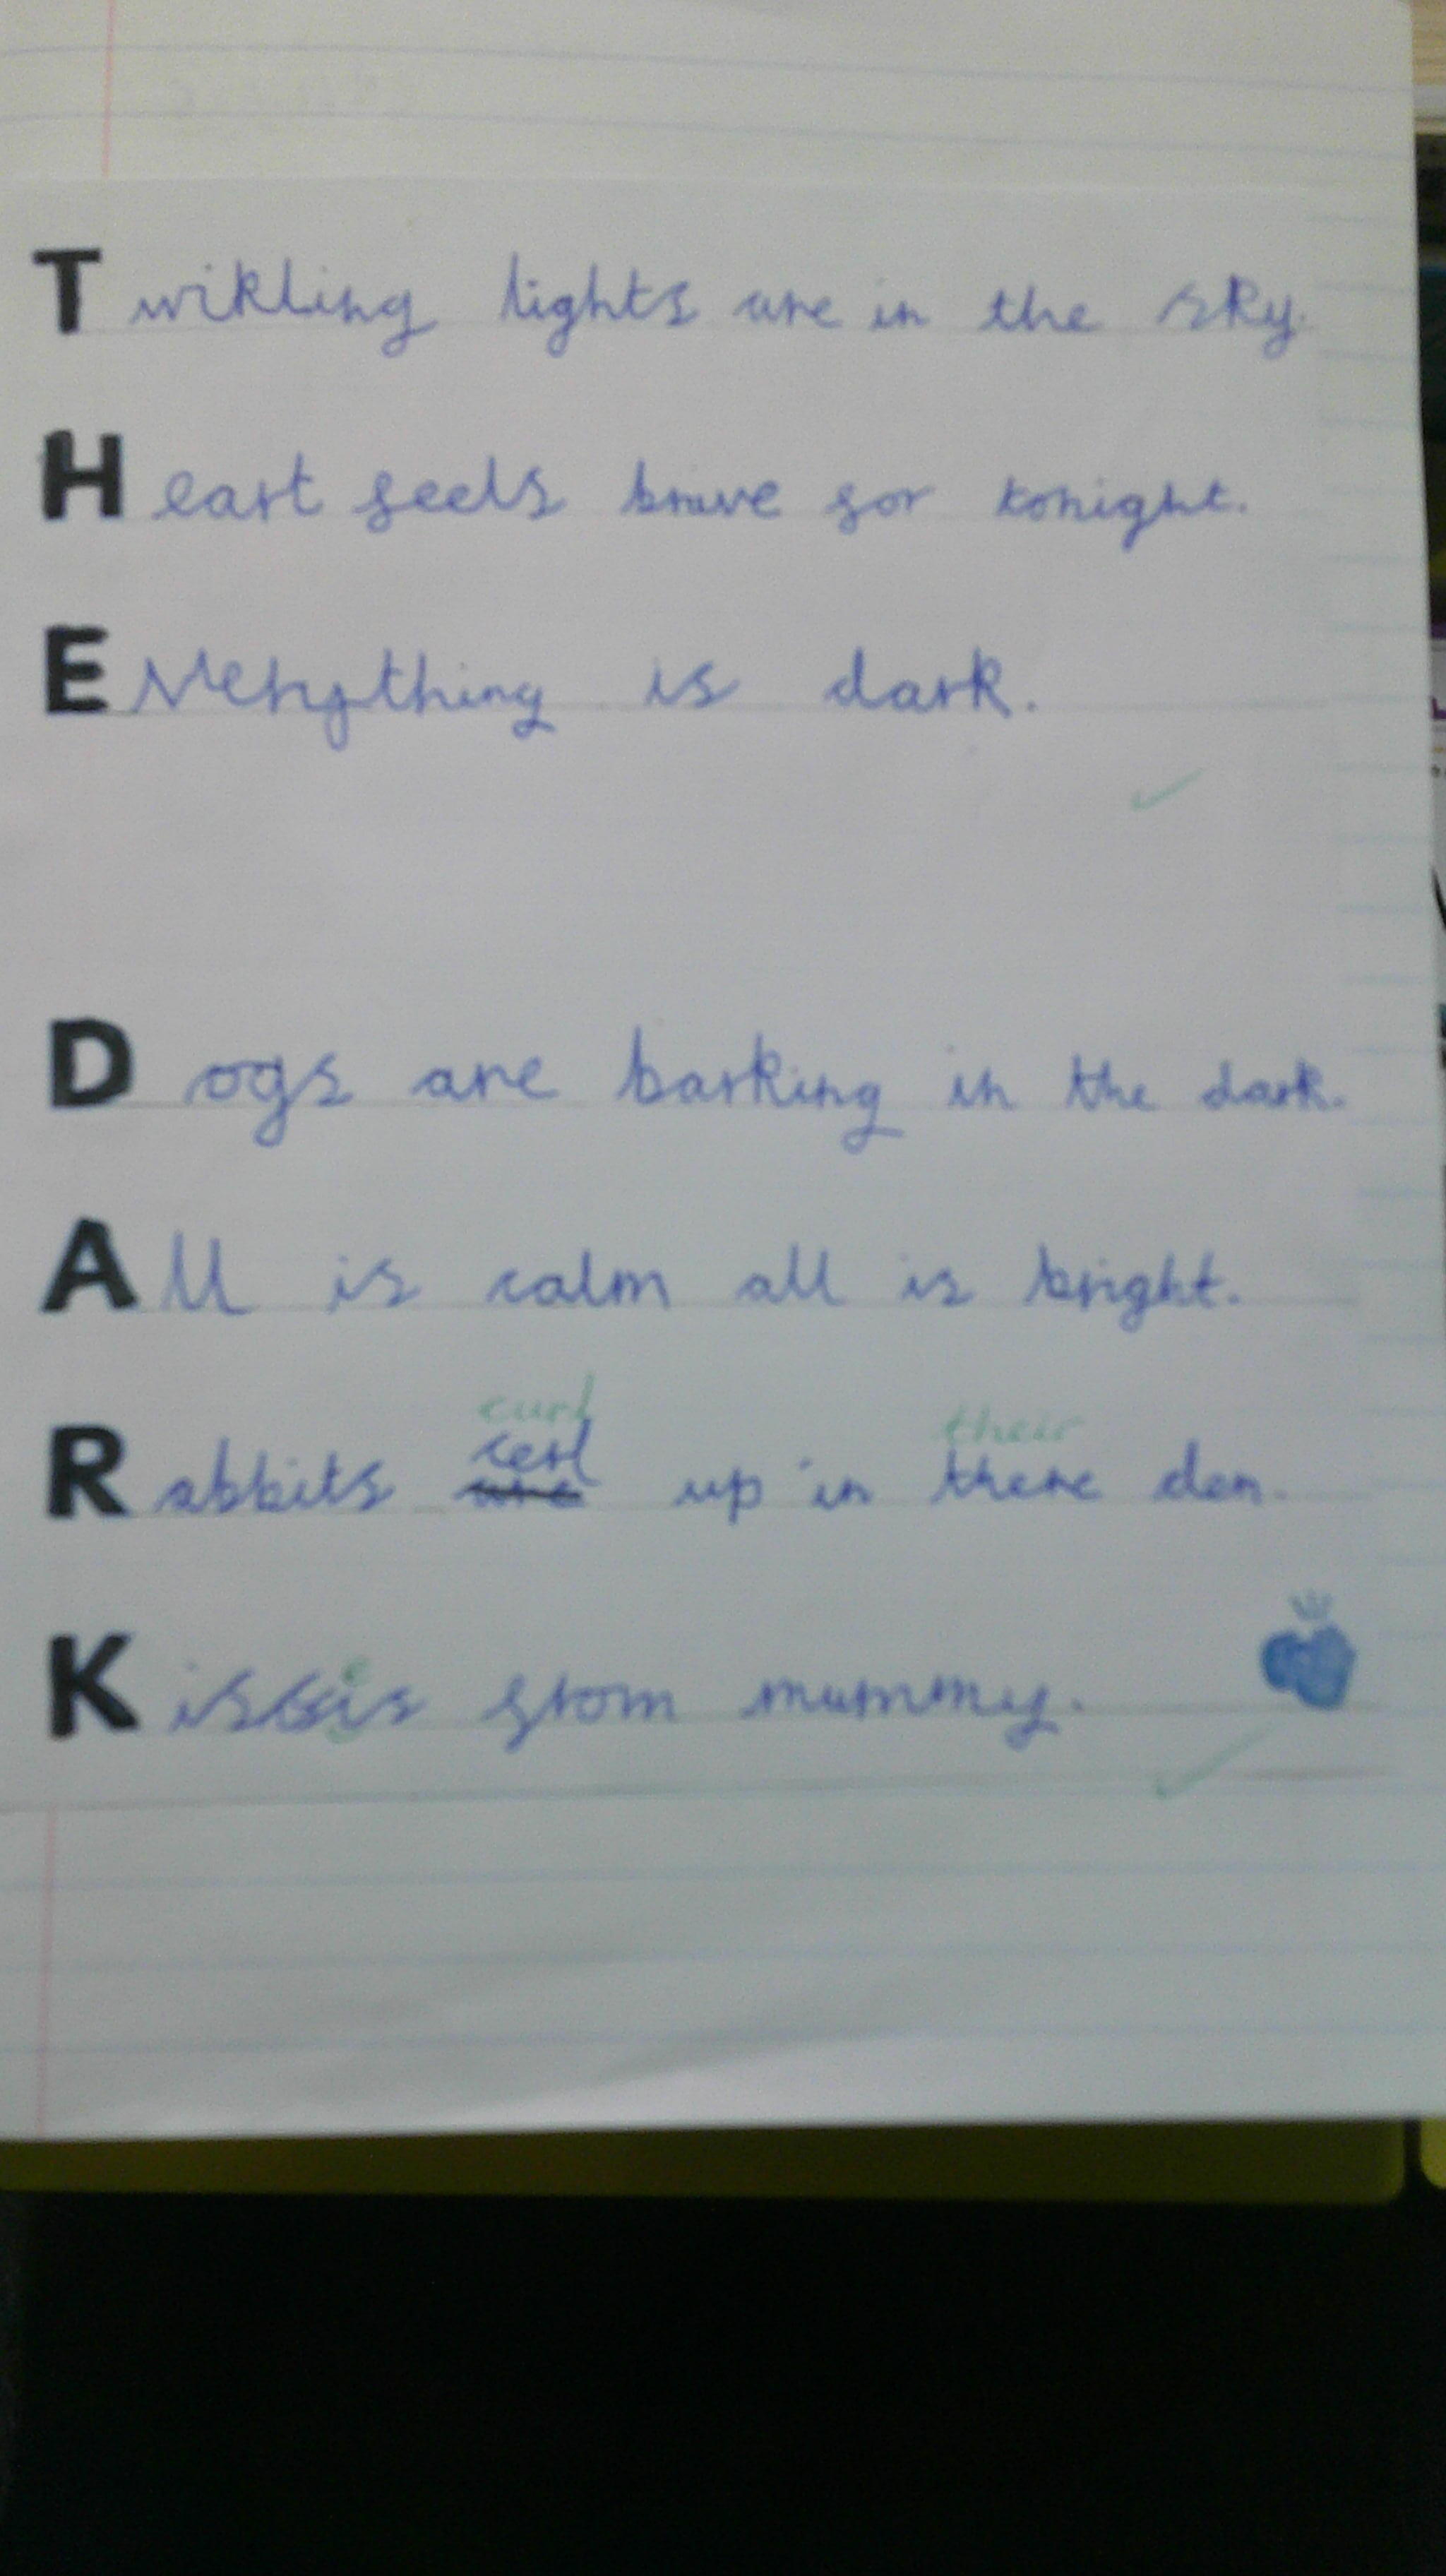 Twikling lights are in the sky.
Heart feels brave for tonight.
Everything is dark.
Dogs are barking in the dark.
All is calm all is bright.
curl their
Rabbits are cerl up in there den.
Kissis from mummy.